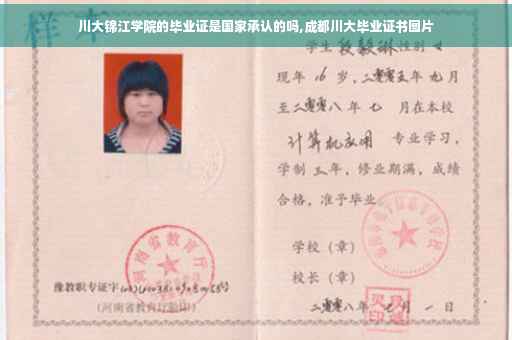 川大锦江学院的毕业证是国家承认的吗,成都川大毕业证书图片
学生 段毅琳 性别 女
现年 16 岁,二零零五年 九月
至二零零八年 七 月在本校
计算机应用 专业学习,
学制 三年,修业期满,成绩
合格,准予毕业
学校(章)
校长(章)
二零零八年 七 月 一 日
河南省教育厅
豫教职专证字
(河南省教育厅验印)